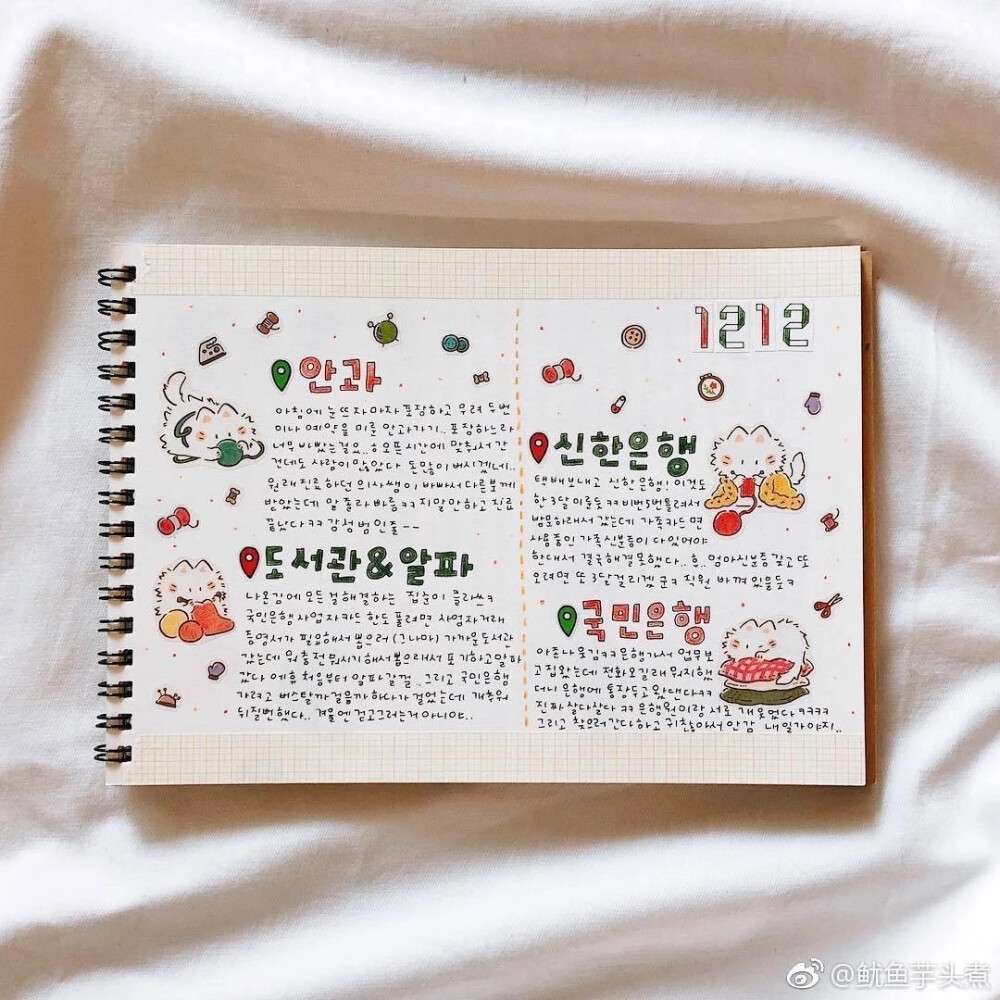 안과
아침에 눈뜨자마자 포장하고 무려 두번
미나 예약을 미룬 안과가기.. 포장하느라
너무 바빴는걸요.. 오픈시간에 맞춰서 간
건데도 사람이 많았다 돈많이 버시겠네..
원래 진료하던 의사쌤이 바빠서 다른분께
받았는데 말 졸라 빠름ㅋㅋ 지말만하고 진료
끝났다ㅋㅋ 강성범인줄--
도서관&알파
나온김에 모든걸 해결하는 집순이 클라쓰ㅋ
국민은행 사업자카드 한도 풀려면 사업자거래
증명서가 필요해서 뽑으러 (그나마) 가까운 도서관
갔는데 뭐 충전 뭐시기 해서 뽑으래서 포기하고 알파
갔다 에휴 처음부터 알파갈걸.. 그리고 국민은행
가려고 버스탈까 걸을까 하다가 걸었는데 개추워
뒤질뻔했다.. 겨울엔 걷고그러는거 아니야..
1212
신한은행
택배보내고 신한은행! 이것도
한 3달 미룬듯ㅋㅋ 비번5번틀려서
방문하래서 갔는데 가족카드면
사용중인 가족신분증이 다있어야
한대서 결국해결못했다.. 흐.. 엄마신분증갖고 또
오려면 또 3달걸리겠군ㅋ 직원 바껴있을듯ㅋ
국민은행
아존나웃김ㅋㅋ은행가서 업무보
고 집왔는데 전화오길래 뭐지했
더니 은행에 통장두고왔댄다ㅋㅋ
진짜 살다살다ㅋㅋ 은행원이랑 서로 개웃었다ㅋㅋㅋㅋ
그리고 찾으러간다하고 귀찮아서 안감 내일가야지..
@鱿鱼芋头煮